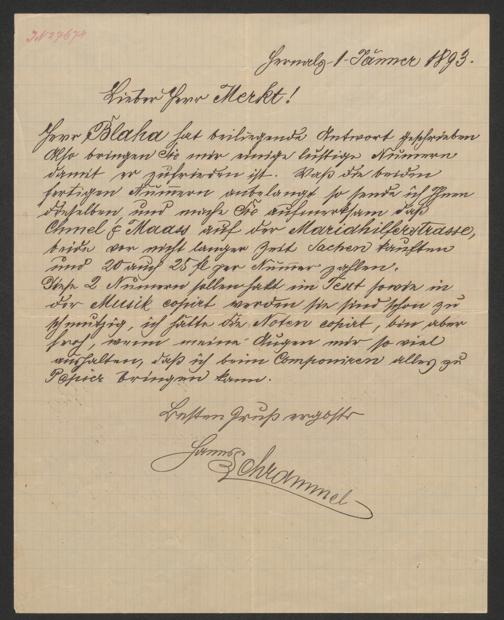 I.N. 27674
Hernals 1. Jänner 1893.
Lieber Herr Merkt!
Herr Blaha hat beiliegende Antwort geschrieben
Also bringen Sie mir einige lustige Numern
damit er zufrieden ist. Was die beiden
fertigen Numern anbelangt so sende ich Ihnen
dieselben, und mache Sie aufmerksam daß
& Maass auf der Mariahilferstrasse,
beide vor nicht langer Zeit Sachen kauften
und 20 auch 25 fl per Numer zahlen.
Diese 2 Numern sollen halt im Text sowie in
der Musik copirt werden sie sind schon zu
schmutzig, ich hätte die Noten copirt, bin aber
froh, wenn meine Augen mir so viel
aushalten, daß ich beim Componiren alles zu
Papier bringen kann.
Besten Gruß ergebster
Hanns Schrammel